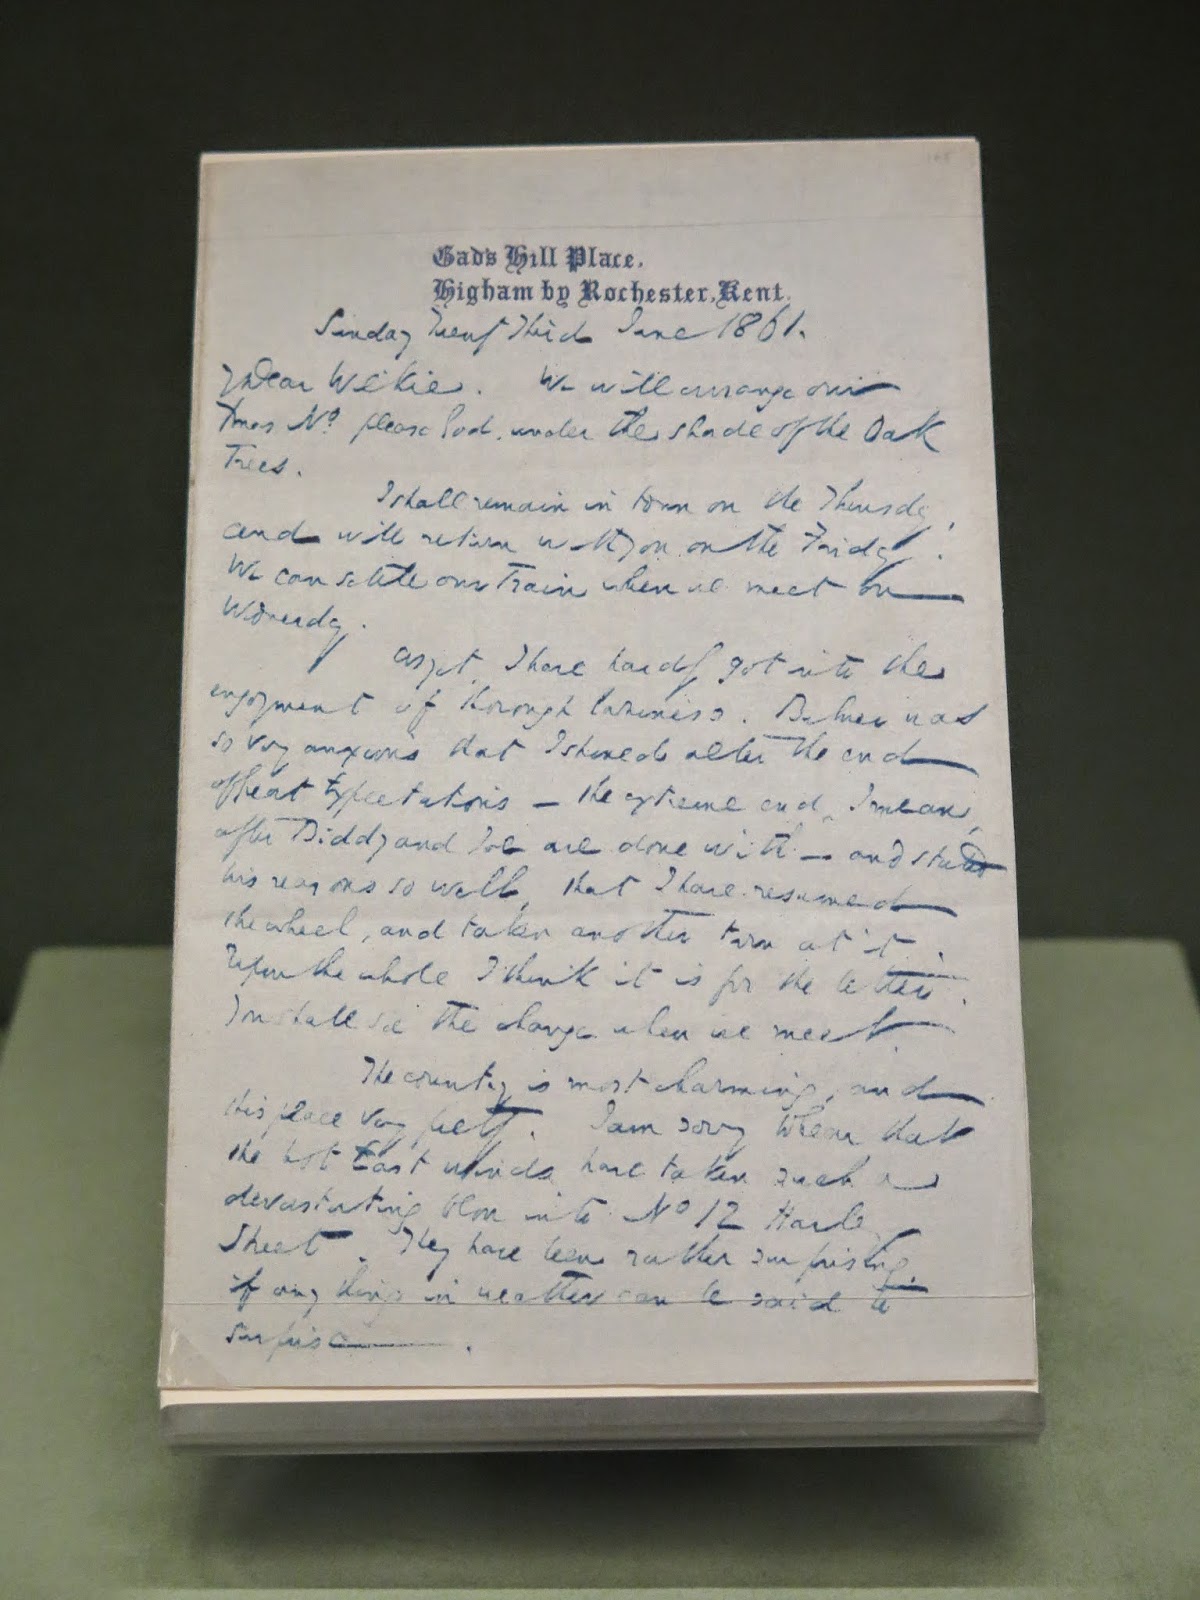 Gad's Hill Place.
Higham by Rochester, Kent.
Sunday Twenty Third June 1861.
My Dear Wilkie. We will arrange our
Xmas No. please God, under the shade of the Oak
Trees.
I shall remain in town on the Thursday,
and will return with you on the Friday.
We can settle our Train when we meet on
Wednesday.
As yet, I have hardly got into the
enjoyment of thorough laziness. Bulwer was
so very anxious that I should alter the end
of Great Expectations — the extreme end, I mean,
after Biddy and Joe are done with — and stated
his reasons so well, that I have resumed
the wheel, and taken another turn at it.
Upon the whole I think it is for the better.
You shall see the change when we meet.
The country is most charming, and
this place very pretty. I am sorry to hear that
the hot East winds have taken such a
devastating blow into No 12 Harley
Street. They have been rather surprising,
if any thing in weather can be said to
surprise.